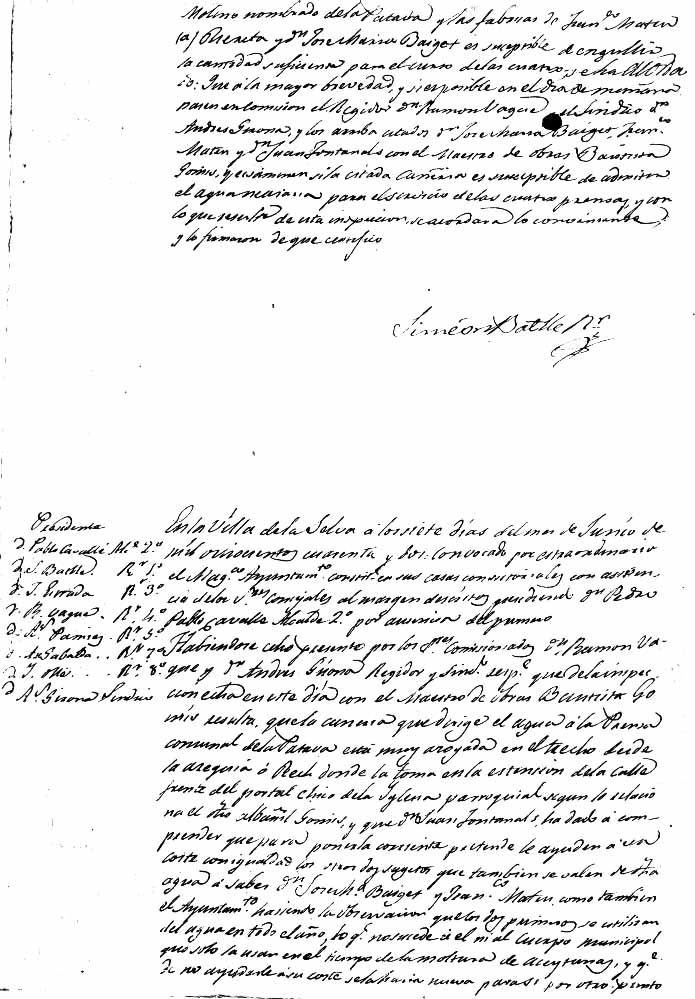 Molino nombrado de la Patava y las fabricas de Fran.co Mateu
(a) y dn Jose Maria Baiget es suceptible de engullir
la cantidad suficiente para el curso de las cuatro, se ha acorda
do: Que á la mayor brevedad, y si es posible en el dia de mañana
pasen en comision el Regidor dn Ramon Vaque el Sindico dn
Andres Girona, y los arriba citados dn Jose Maria Baiget, Fran.co
Mateu y dn Juan Fontanals con el Maestro de obras Bautista
Gomis, y examinen si la citada cañeria es suceptible de admitir
el agua necesaria para el servicio de las cuatro prensas, y con
lo que resulte de esta inspeccion, se acordara lo conveniente
y lo firmaron de que certifico
Simeon Batlle Rr
Presidente
d. Pablo Cavallé Al.e 2.o
d. S. Batlle. Rr 1.o
d. J. Rr. 3.o
d. R. Vaque. Rr. 4.o
Rr. 5.o
Rr. 7.o
d. J. Rr. 8.o
d. Girona Sindico
En la Villa de la Selva á los siete dias del mes de Junio de
mil ochocientos cuarenta y dos: convocado por extraordinario
el Mag.co Ayuntam.to constit.l en sus casas consistoriales con asisten
cia de los S.res Concejales al margen descritos presidiendo dn Pedro
Pablo Cavalle Alcalde 2.o por ausencia del primero
Habiendose echo presente por los S.res Comisionados dn Ramon Va-
que y dn Andres Girona Regidor y Sind.o resp.e que de la inspec
cion echa en este dia con el Maestro de obras Bautista Go
mis resulta, que la cañeria que dirige el agua á la Prensa
comunal de la Patava está muy arogada en el trecho desde
la azequia ó Rech donde la toma en la estension de la Calle
frente del portal chico de la Yglesia parroquial segun lo relacio
na el dho albañil Gomis, y que dn Juan Fontanals, ha dado á com-
prender que para ponerla corriente pretende le ayuden á su
coste con igualdad los otros dos sugetos que tambien se valen de dha
agua á saber dn Jose M.a Baiget y Fran.co Mateu, como tambien
el Ayuntam.to haciendo la observacion que los dos primeros se utilizan
del agua en todo el año, lo q.e no sucede á el ni al Cuerpo municipal
que solo la usan en el tiempo de la moltura de Aceytunas, y q.e
de no ayudarle á su coste se la haria nueva para si por otro punto